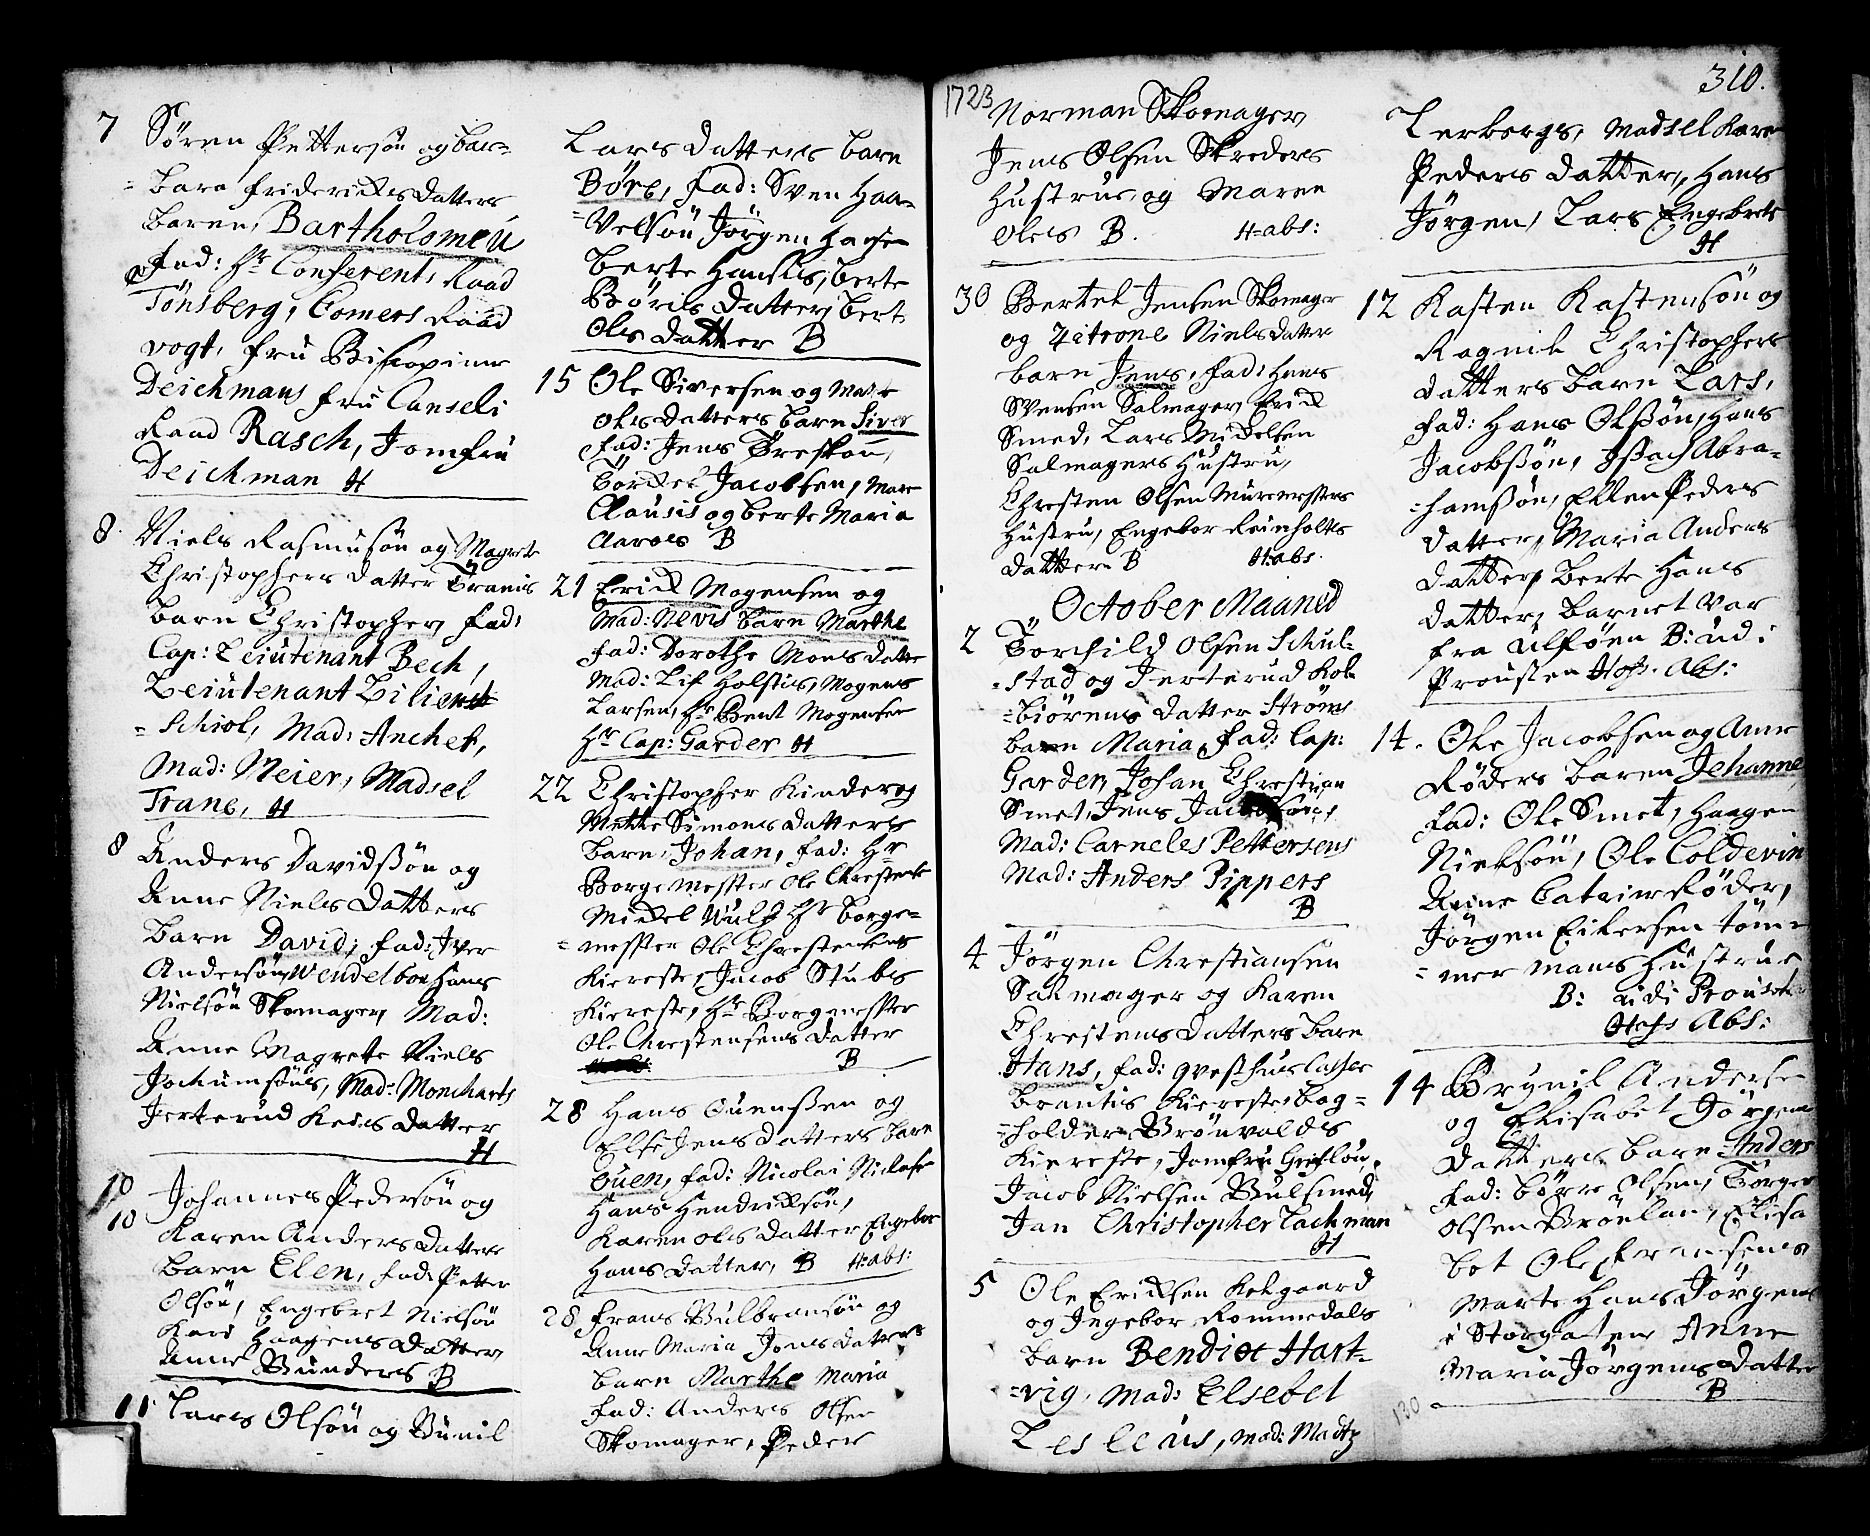 7 Søren Pettersøn og Bar=
=bara Friderichs datters
baren, Bartholomeu
Fad: Hr Conferent, Raad
Tønsberg, Comers Raad
vogt, Fru Biscopinne
Deichmans Fru Canseli
Raad Rasch, Jomfru
Deichman H
8 Niels Rasmusøn og Magrete
Christophers datter Tranis
barn Christopher, Fad:
Cap: Leiutenant Bech,
Leiutenant Lilienst
=Schiol, Mad: Anchet,
Mad: Meier, Madsel
Trane, H
8 Anders Davidssøn og
Anne Niels datters
barn David, Fad: Iver
Andersøn, Wendelboe Hans
Nielsøn Skomager, Mad:
Anne Magrete Niels
Jochumsøns, Mad: Moncharts
Jerterud Keis datter
H
10
10 Johannes Pedersøn og
Karen Anders datters
barn Elen, Fad: Petter
Olsøn, Engebret Nielsøn
Kari Haagens datter
Anne Gunders B
11 Lars Olsøn og Gunil
Lars datters barn
Børe, Fad: Sven Haa=
=Velsøn Jørgen Hanse
berte Hanses, berte
Børils datter, bert
Ols datter B
15 Ole Siversen og Marte
ols datters barn Siver
Fad: Jens Treskou,
Torkel Jacobsen, Mare
Clausis og berte Maria
Aaroes B
21 Erick Mogensen og
Mad: Nevis barn Marthe
Fad: Dorothe Mons datte
Mad: Lis Holstis, Mogens
Larsen, Hr Bent Mogensen
Hr Cap: Garder H
22 Christopher Kinder og
Mette Simons datters
barn, Johan, Fad: Hr
Borgemester Ole Chrestense
Mickel Wulf Hr borge=
=mester Ole Chrestensens
Kiereste, Jacob Stubs
Kiereste, Hr Borgmester
Ole Chrestensens datter
B
28 Hans Ouenssen og
Else Jens datters barn
Ouen, Fad: Nicolai Nielse
Hans Hendrichsøn,
Karen ols datter Engebor
Hans datter, B H: abs:
28 Frans Gulbransøn og
Anne Maria Jons datters
barn Marthe Maria
Fad: Anders Olsen
Skomager, Peder
1723
310.
Norman Skomager
Jens Olsen Skreders
Hustrue, og Maren
Oles B. H=abs:
30 Bertel Jensen Skomager
og Zitrone Niels datter
barn Jens, Fad: Hans
Svensen Salmager, Erick
Smed, Lars Mickelsen
Salmagers Hustru,
Chresten Olsen Mürmesters
Hustru, Engebor Reinholts
datter B H: abs.
October Maaned
2 Torchild Olsen Schul=
=stad og Jerterud Kol
=biørens datter Strøms
barn Maria, Fad: Cap:
Garder, Johan Chrestian
Smet, Jens Jacobsens,
Mad: Carneles Pettersens
Mad: Anders Pippers
B
4 Jørgen Chrestiansen
Salmager og Karen
Chrestens datters barn
Hans, Fad: gresthus Casper
Brantis Kiereste, Bog=
=holder Grønvolds
Kiereste, Jomfru Greflou,
Jacob Nielsen Gulsmed,
Jan Christopher Lachman
H
5 Ole Ericksen Kolgaard
og Ingebor Rommedals
barn Bendict Hart=
=vig, Mad: Elsebet
Lesleus, Mad: Maatz
Lerbergs, Madsel Karen
Peders datter, Hans
Jørgen, Lars Engebrets
H
12 Kasten Kastensøn og
Ragnil Christophers
datters barn Lars,
Fad: Hans Olssøn, Hans
Jacobssøn, Issach Abra=
=hamssøn, Ellen Peders
datter, Maria Anders
datter, Berte Hans
datter, barnet var
fra Ulføen B: udi
Prousten Hofs. Abs:
14. Ole Jacobsen og Anne
Røders baren Jehanne,
Fad: Ole Smet, Haagen
Nielsøn, Ole Coldevin
Anne Catrine Røder,
Jørgen Eilersen tøm=
=mer mans Hustrue
B: udi Proust
Hofs Abs:
14 Brynil Anderse
og Elisabet Jørgens
datters barn Anders
Fad: Børre Olsen, Torger
Olsen Brøelan, Elisa
bet Ole Fransens
Marte Hans Jørgens
i Storgaten Anne
Maria Jørgens datter
B
130